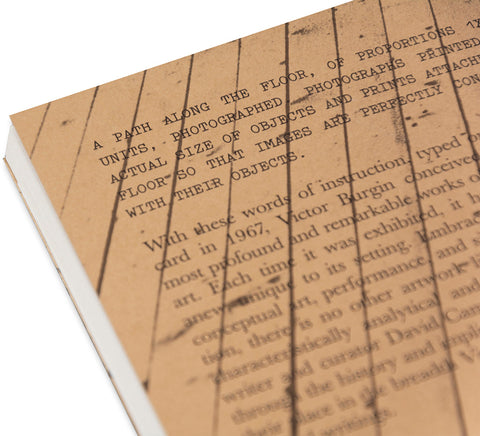 A PATH ALONG THE FLOOR, OF PROPORTIONS 1X
UNITS, PHOTOGRAPHED. PHOTOGRAPHS PRINTED
ACTUAL SIZE OF OBJECTS AND PRINTS ATTACHE
FLOOR SO THAT IMAGES ARE PERFECTLY CON
WITH THEIR OBJECTS.
With these words of instruction, typed on
card in 1967, Victor Burgin conceived
most profound and remarkable works o
art. Each time it was exhibited, it h
anew, unique to its setting. Embrac
conceptual art, performance, and s
tion, there is no other artwork li
characteristically analytical and
writer and curator David Cam
through the history and impli
their place in the breadth
writings.